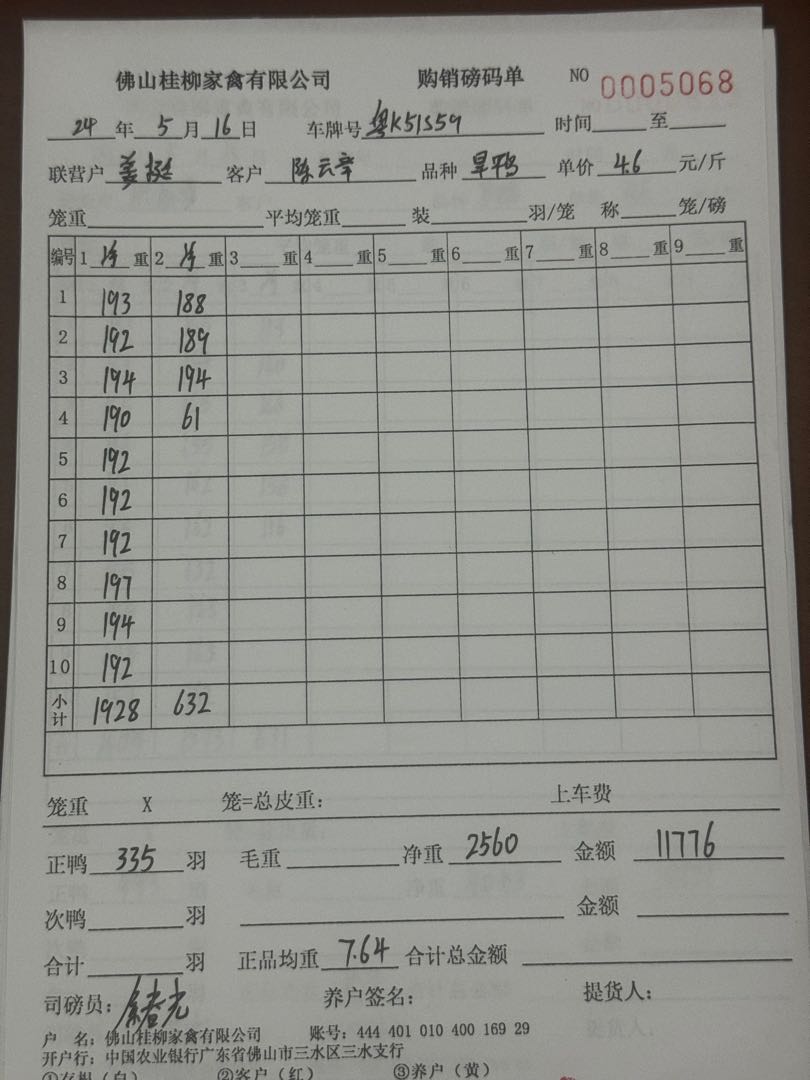 佛山桂柳家禽有限公司 购销磅码单 NO 0005068
24 年 5 月 16 日 车牌号 粤K51S59 时间 至
联营户 姜挺 客户 陈云章 品种 旱鸭 单价 4.6 元/斤
笼重 平均笼重 装 羽/笼 称 笼/磅
编号 1 净 重 2 净 重 3 重 4 重 5 重 6 重 7 重 8 重 9 重
1 193 188
2 192 189
3 194 194
4 190 61
5 192
6 192
7 192
8 197
9 194
10 192
小计 1928 632
笼重 X 笼=总皮重: 上车费
正鸭 335 羽 毛重 净重 2560 金额 11776
次鸭 羽 金额
合计 羽 正品均重 7.64 合计总金额
司磅员: 养户签名: 提货人:
户 名: 佛山桂柳家禽有限公司 账号: 444 401 010 400 169 29
开户行: 中国农业银行广东省佛山市三水区三水支行
①存根(白) ②客户(红) ③养户(黄)